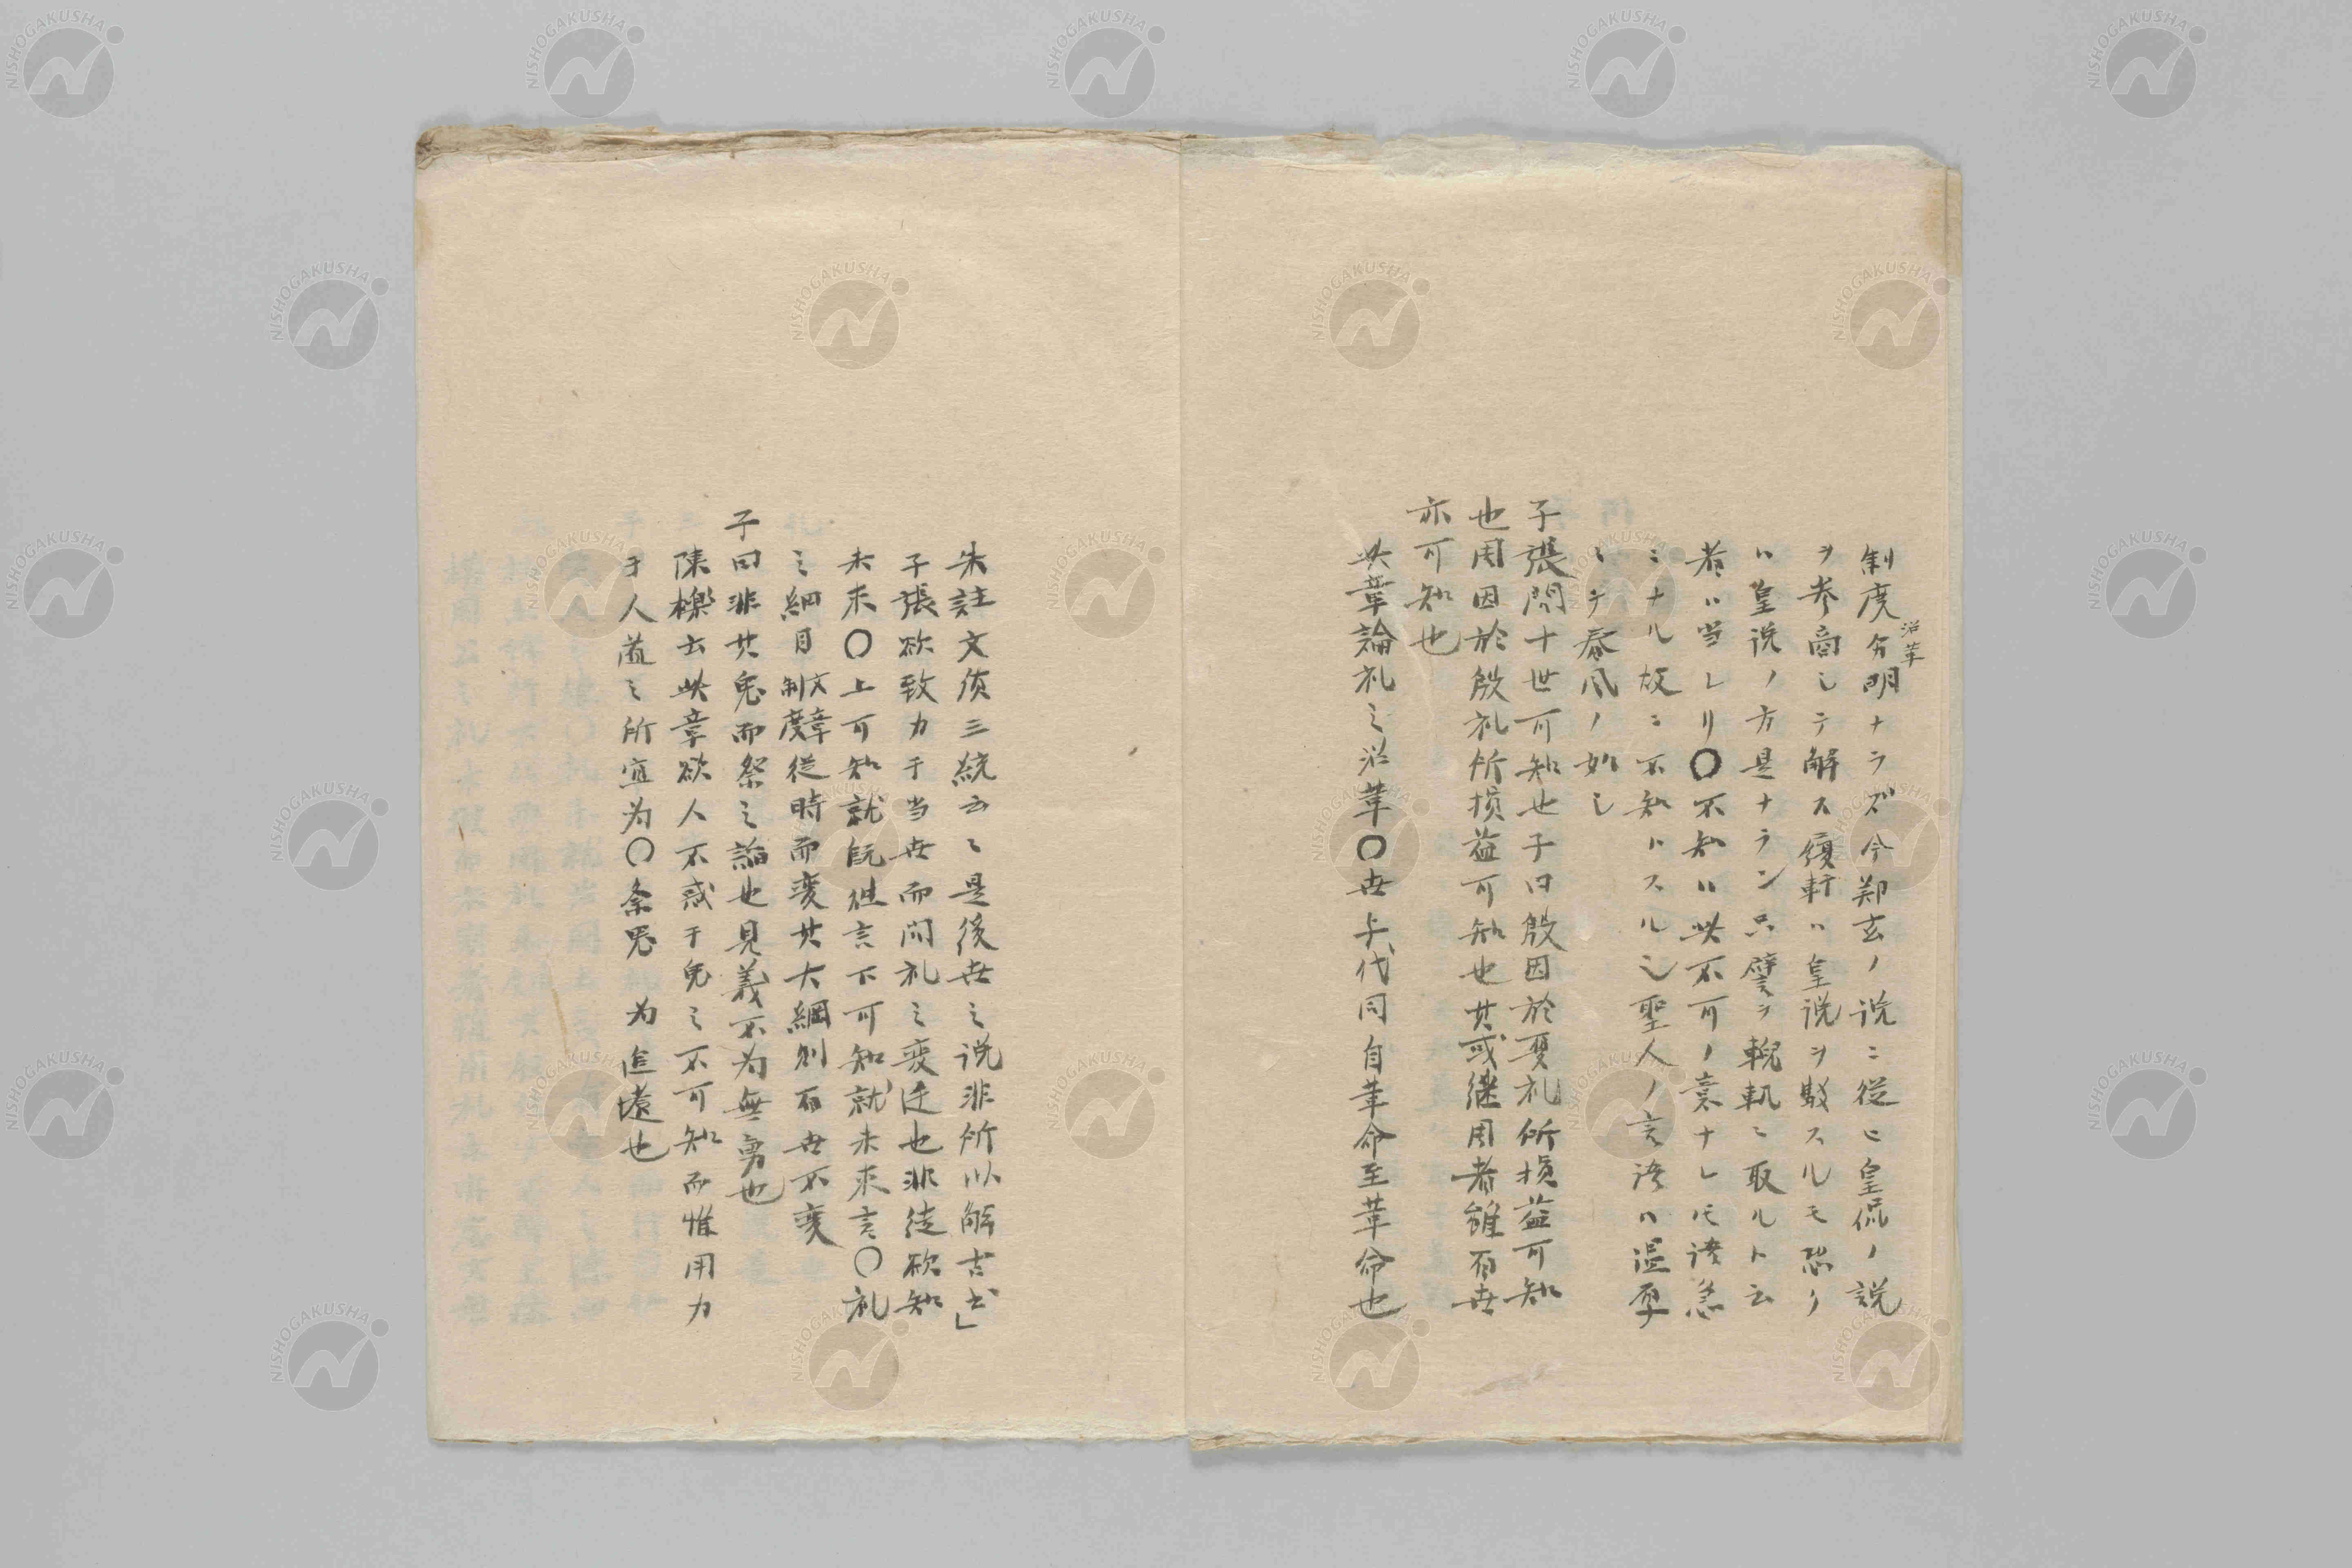 制度沿革分明ナラズ今鄭玄ノ説ニ従ヒ皇侃ノ説
ヲ参商シテ解ス復軒ハ皇説ヲ駁スルモ恐ク
ハ皇説ノ方是ナラン只譬ヲ輗軏ニ取ルト云
者ハ当レリ〇不知ハ此不可ノ意ナレモ語急
ニナル故ニ不知トスル也聖人ノ言語ハ温厚
ミテ春風ノ如シ
子張問十世可知也子曰殷因於夏礼所損益可知
也周因於殷礼所損益可知也其或継周者雖百世
亦可知也
此章論礼之沿革〇世与代同自革命至革命也
朱註文質三統云々是後世之説非所以解古書」
子張欲致力于当世而問礼之変迁也非徒欲知
未来〇上可知就既往言下可知就未来言〇礼
之細目制度文章従時而変其大綱則百世不変
子曰非其鬼而祭之諂也見義不為無勇也
陳櫟云此章欲人不惑于鬼之不可知而惟用力
于人道之所宜為〇祭鬼 為追遠也
NISHOGAKUSHA